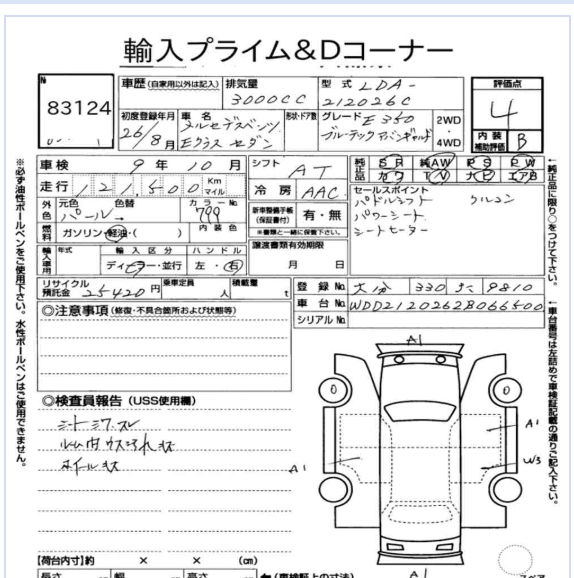 輸入プライム&Dコーナー
№ 83124
車歴(自家用以外は記入) 排気量 3000CC 型式 LDA-212026C
評価点 4
内装補助評価 B
初度登録年月 26/8月 車名 メルセデスベンツ Eクラス セダン 形状・ドア数 グレード E350 ブルーテックアバンギャルド 2WD・4WD
車検 9年10月 シフト AT 純正品 SR 純AW PS PW カワ TV ナビ エアB
走行 121,500 Km マイル 冷房 AAC
セールスポイント パドルシフト クルコン
パワーシート
シートヒーター
外色 元色 パール 色替 カラーNo. 799
新車整備手帳(保証書付) 有・無 ※書類と一緒に保管下さい。
燃料 ガソリン・軽油・( ) 内装色
譲渡書類有効期限 月 日
輸入車用 年式 輸入区分 ディーラー・並行 ハンドル 左・右
リサイクル預託金 25420円 乗車定員 人 積載量 t
登録No. 大分 330 9810
車台No. WDD2120262B066500
シリアルNo.
◎注意事項(修復・不具合箇所および状態等)
◎検査員報告(USS使用欄)
シートミワ、スレ
ルーム内ウスヨゴレ キズ
ホイールキズ
A1
A1
A1
W3
A1
スペア
【荷台内寸】約 × × (cm)
長さ 幅 高さ (車検証上の寸法)
※必ず油性ボールペンをご使用下さい。水性ボールペンはご使用できません。
↑純正品に限り○をつけて下さい。
↑車台番号は左詰めで車検証記載の通りご記入下さい。